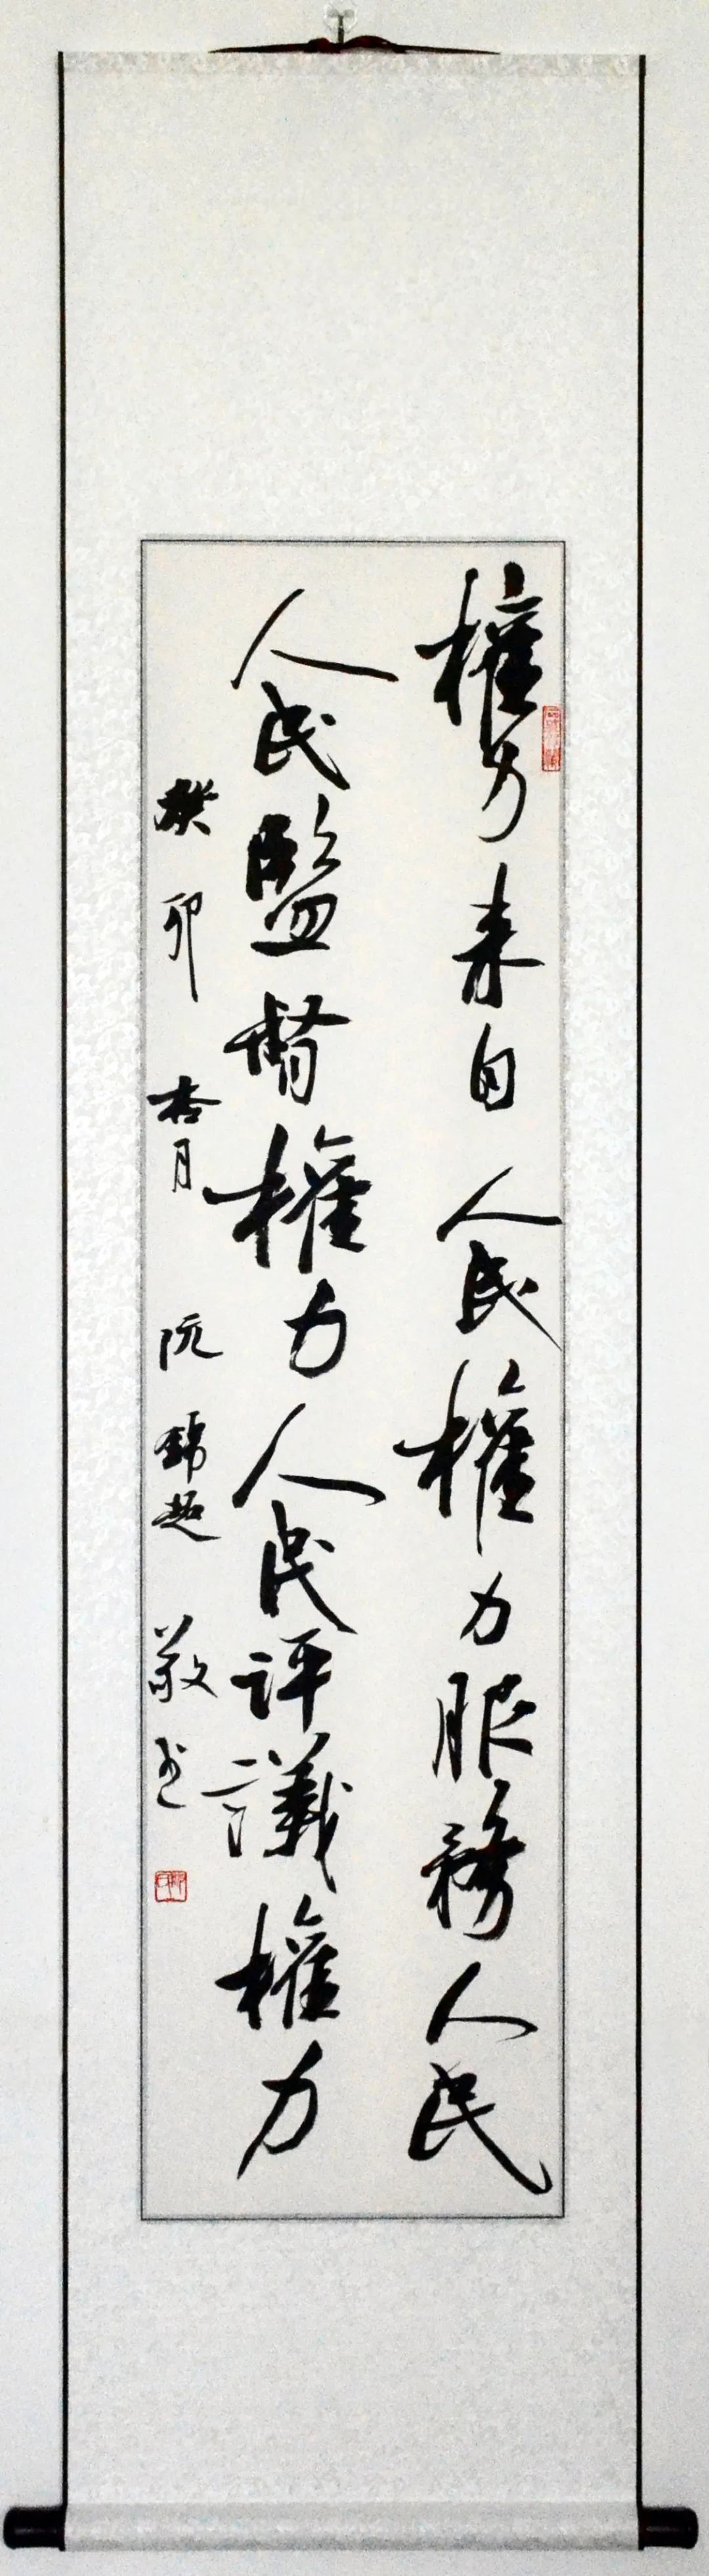 權力来自人民權力服務人民
人民監督權力人民評議權力
癸卯杏月阮錦超敬书